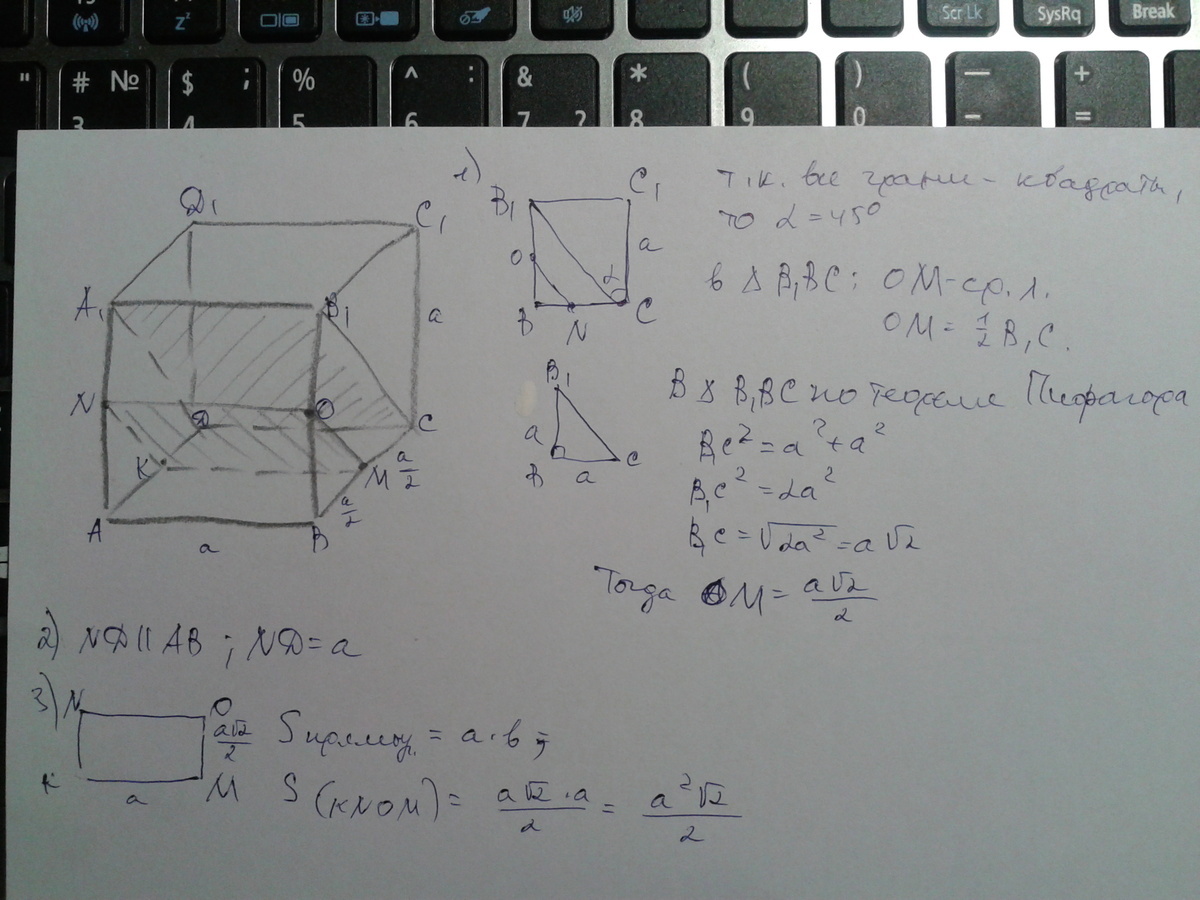 Scr Lk
SysRq
Break
z
"
# №
3
$ ;
4
%
5
^ :
6
& 
7 ?
*
8
(
9
)
0
—
-
+
=
D1
C1
A1
B1
a
N
D
O
C
K
M
a/2
a/2
A
B
a
1)
B1
C1
O
a
α
B
N
C
B1
a
B
a
C
т.к. все грани - квадраты,
то α = 45°
в Δ B1BC: OM - ср. л.
OM = 1/2 B1C.
В Δ B1BC по теореме Пифагора
B1C² = a² + a²
B1C² = 2a²
B1C = √2a² = a√2
Тогда OM = a√2/2
2) ND || AB ; ND = a
3) N
O
a√2/2
K
a
M
S прямоуг. = a · b ;
S (KNOM) = a√2 · a/2 = a²√2/2